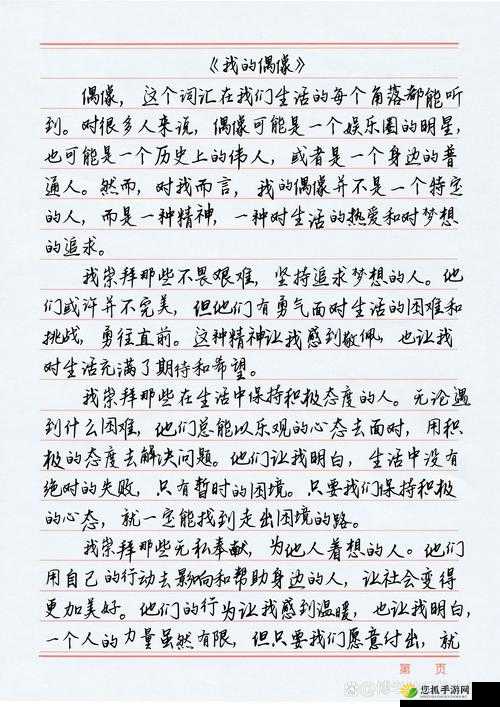 《我的偶像》
偶像，这个词汇在我们生活的每个角落都能听
到。对很多人来说，偶像可能是一个娱乐圈的明星，
也可能是一个历史上的伟人，或者是一个身边的普
通人。然而，对我而言，我的偶像并不是一个特定
的人，而是一种精神，一种对生活的热爱和对梦想
的追求。
我崇拜那些不畏艰难，坚持追求梦想的人。他
们或许并不完美，但他们有勇气面对生活的困难和
挑战，勇往直前。这种精神让我感到敬佩，也让我
对生活充满了期待和希望。
我崇拜那些在生活中保持积极态度的人。无论遇
到什么困难，他们总能以乐观的心态去面对，用积
极的态度去解决问题。他们让我明白，生活中没有
绝对的失败，只有暂时的困境。只要我们保持积极
的心态，就一定能找到走出困境的路。
我崇拜那些无私奉献，为他人着想的人。他们
用自己的行动去影响和帮助身边的人，让社会变得
更加美好。他们的行为让我感到温暖，也让我明白，
一个人的力量虽然有限，但只要我们愿意付出，就
第 页
您抓手游网